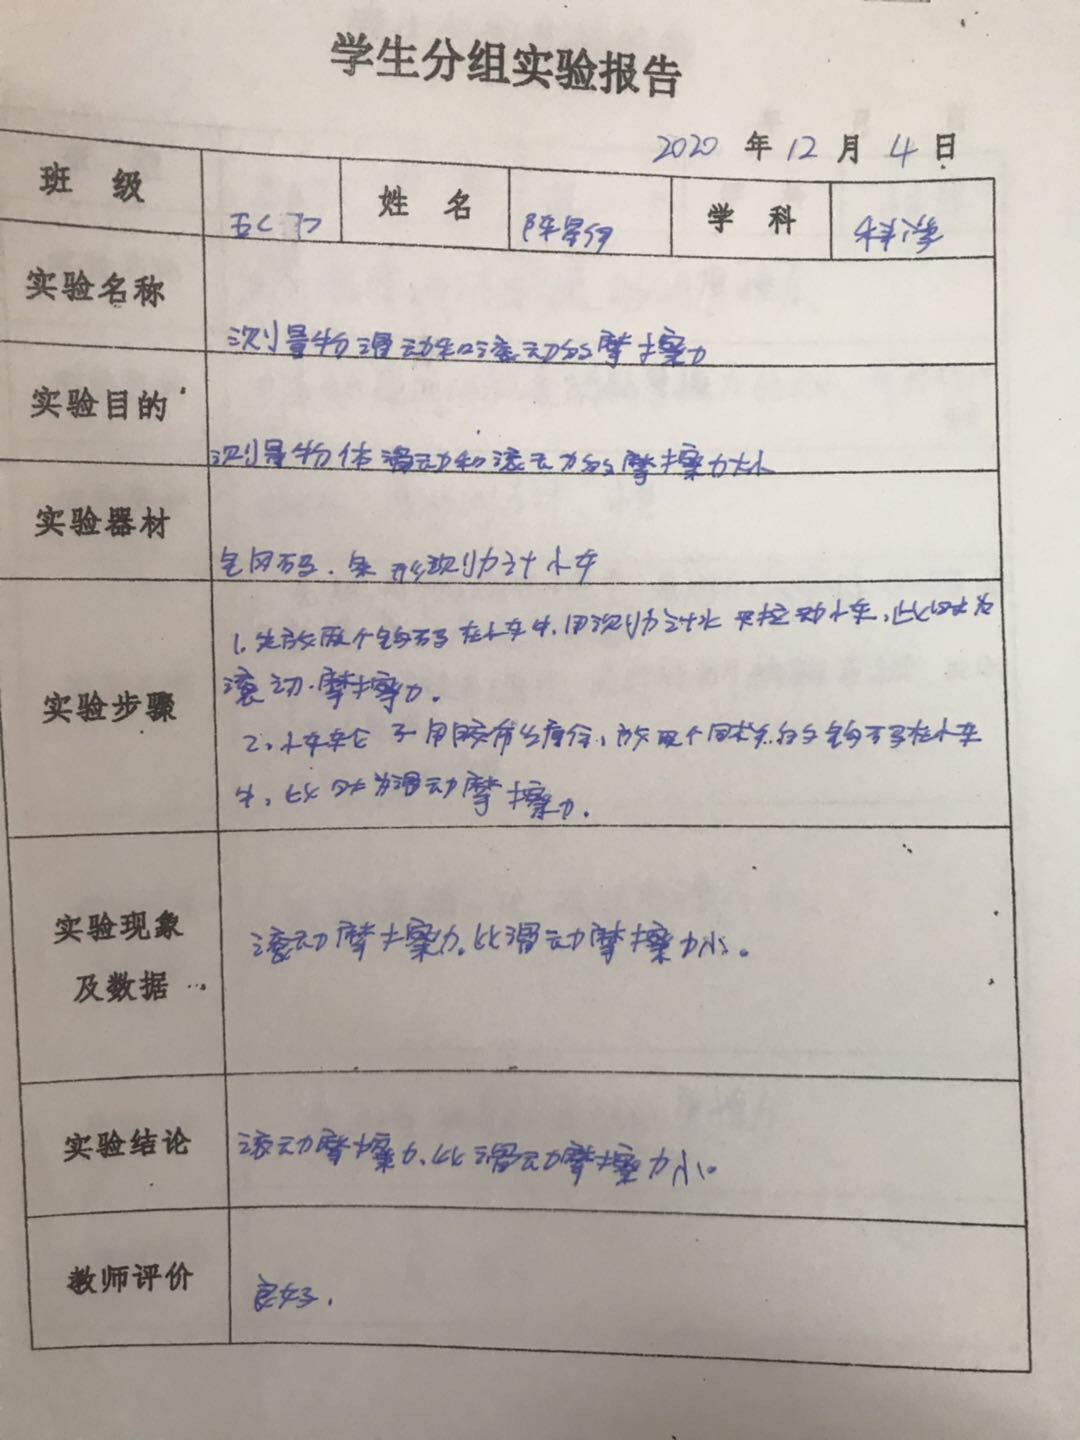 学生分组实验报告
2020 年 12 月 4 日
班 级 姓 名 陈 学 科 科学
实验名称 测量物滑动和滚动的摩擦力
实验目的 测量物体滑动和滚动的摩擦力大小
实验器材 钩码.条形测力计小车
实验步骤 1.先放两个钩码在小车上.用测力计水平拉动小车,此时为
滚动.摩擦力.
2.小车车轮子用胶布缠住,放两个同样的钩码在小车
上,此时为滑动摩擦力.
实验现象
及数据 滚动摩擦力.比滑动摩擦力小。
实验结论 滚动摩擦力.比滑动摩擦力小。
教师评价 良好.